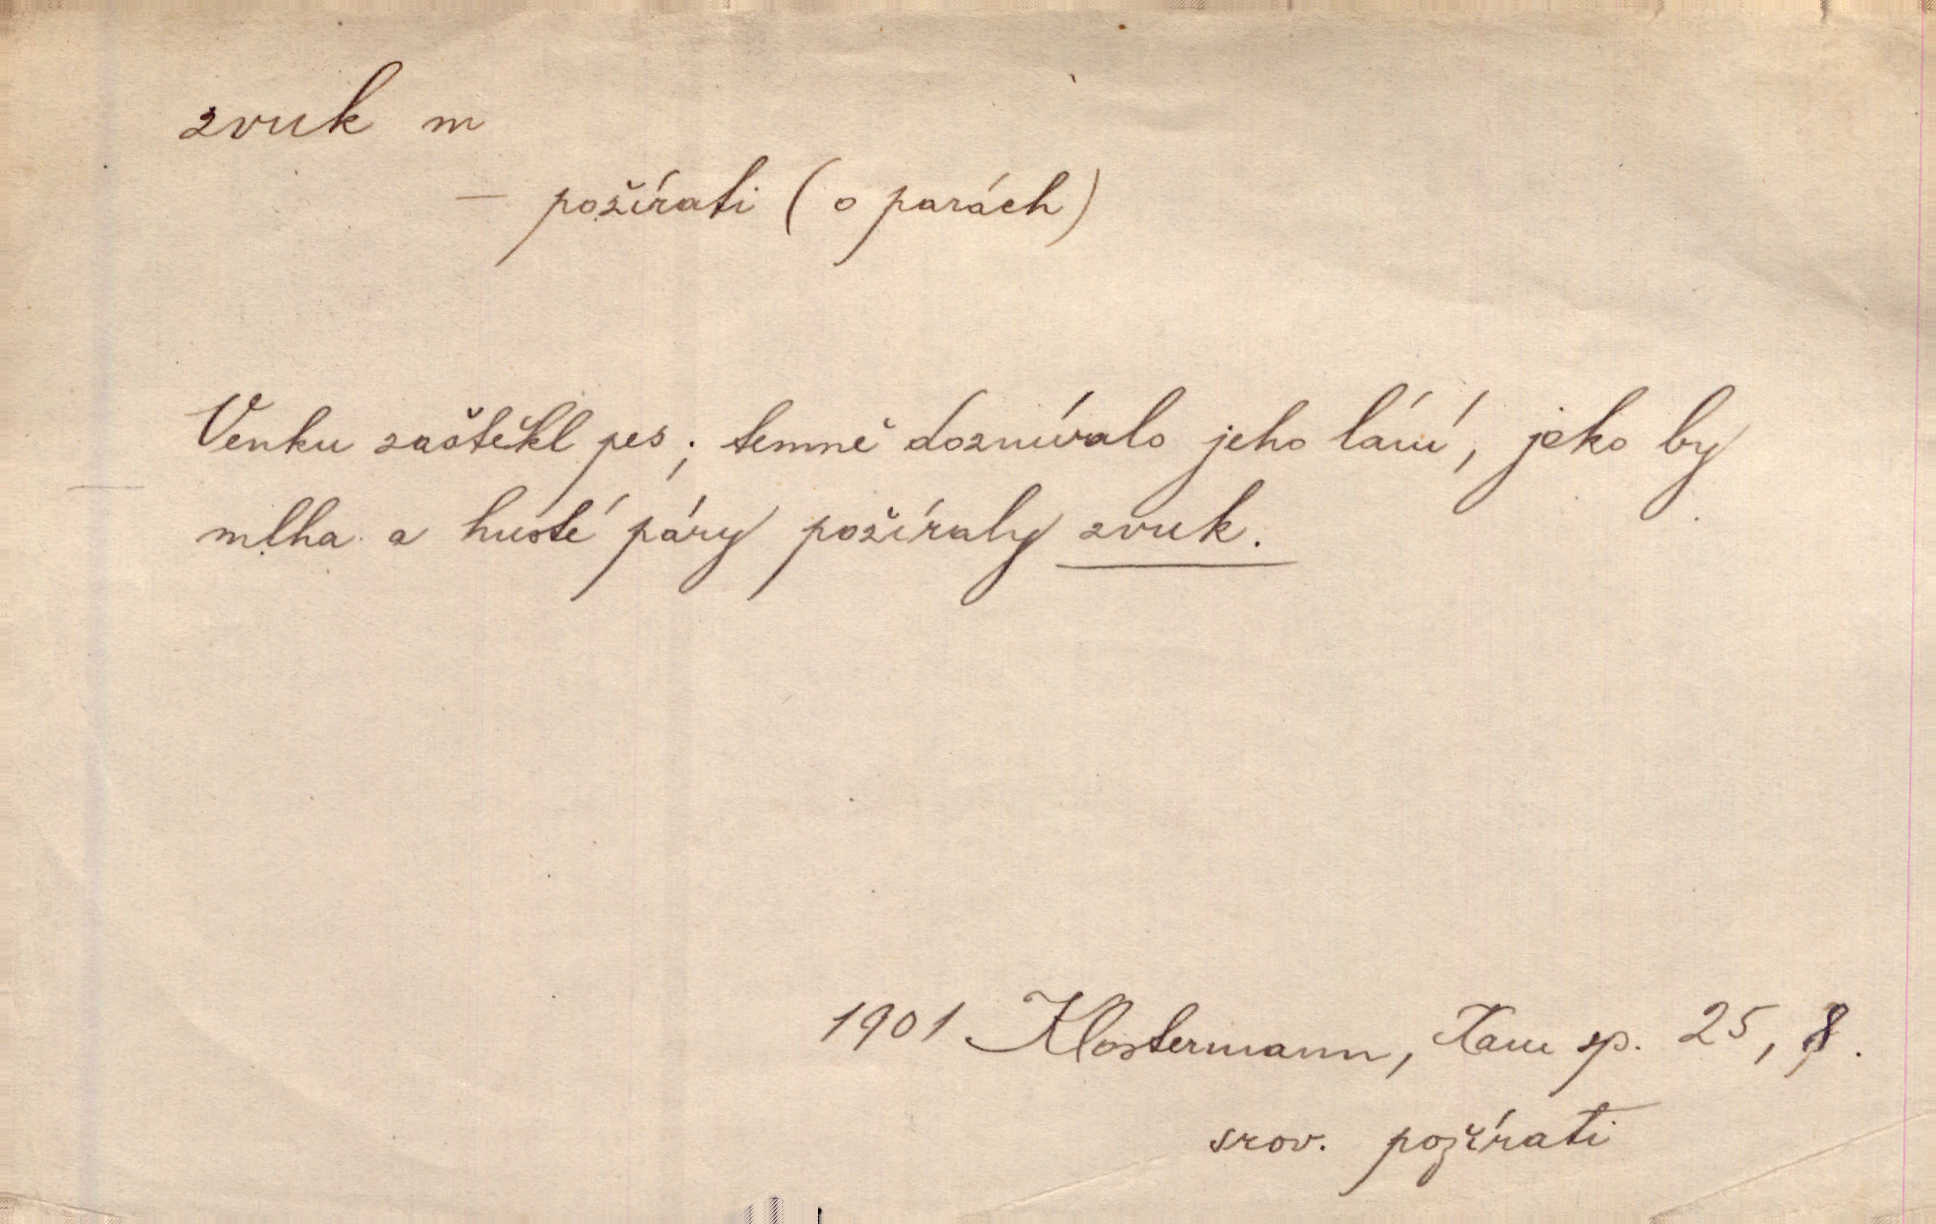 zvuk m
— požírati (o parách)
Venku zaštěkl pes; temně doznívalo jeho lání, jako by
mlha a husté páry požíraly zvuk.
1901 Klostermann, Kam sp. 25, 8.
srov. požírati